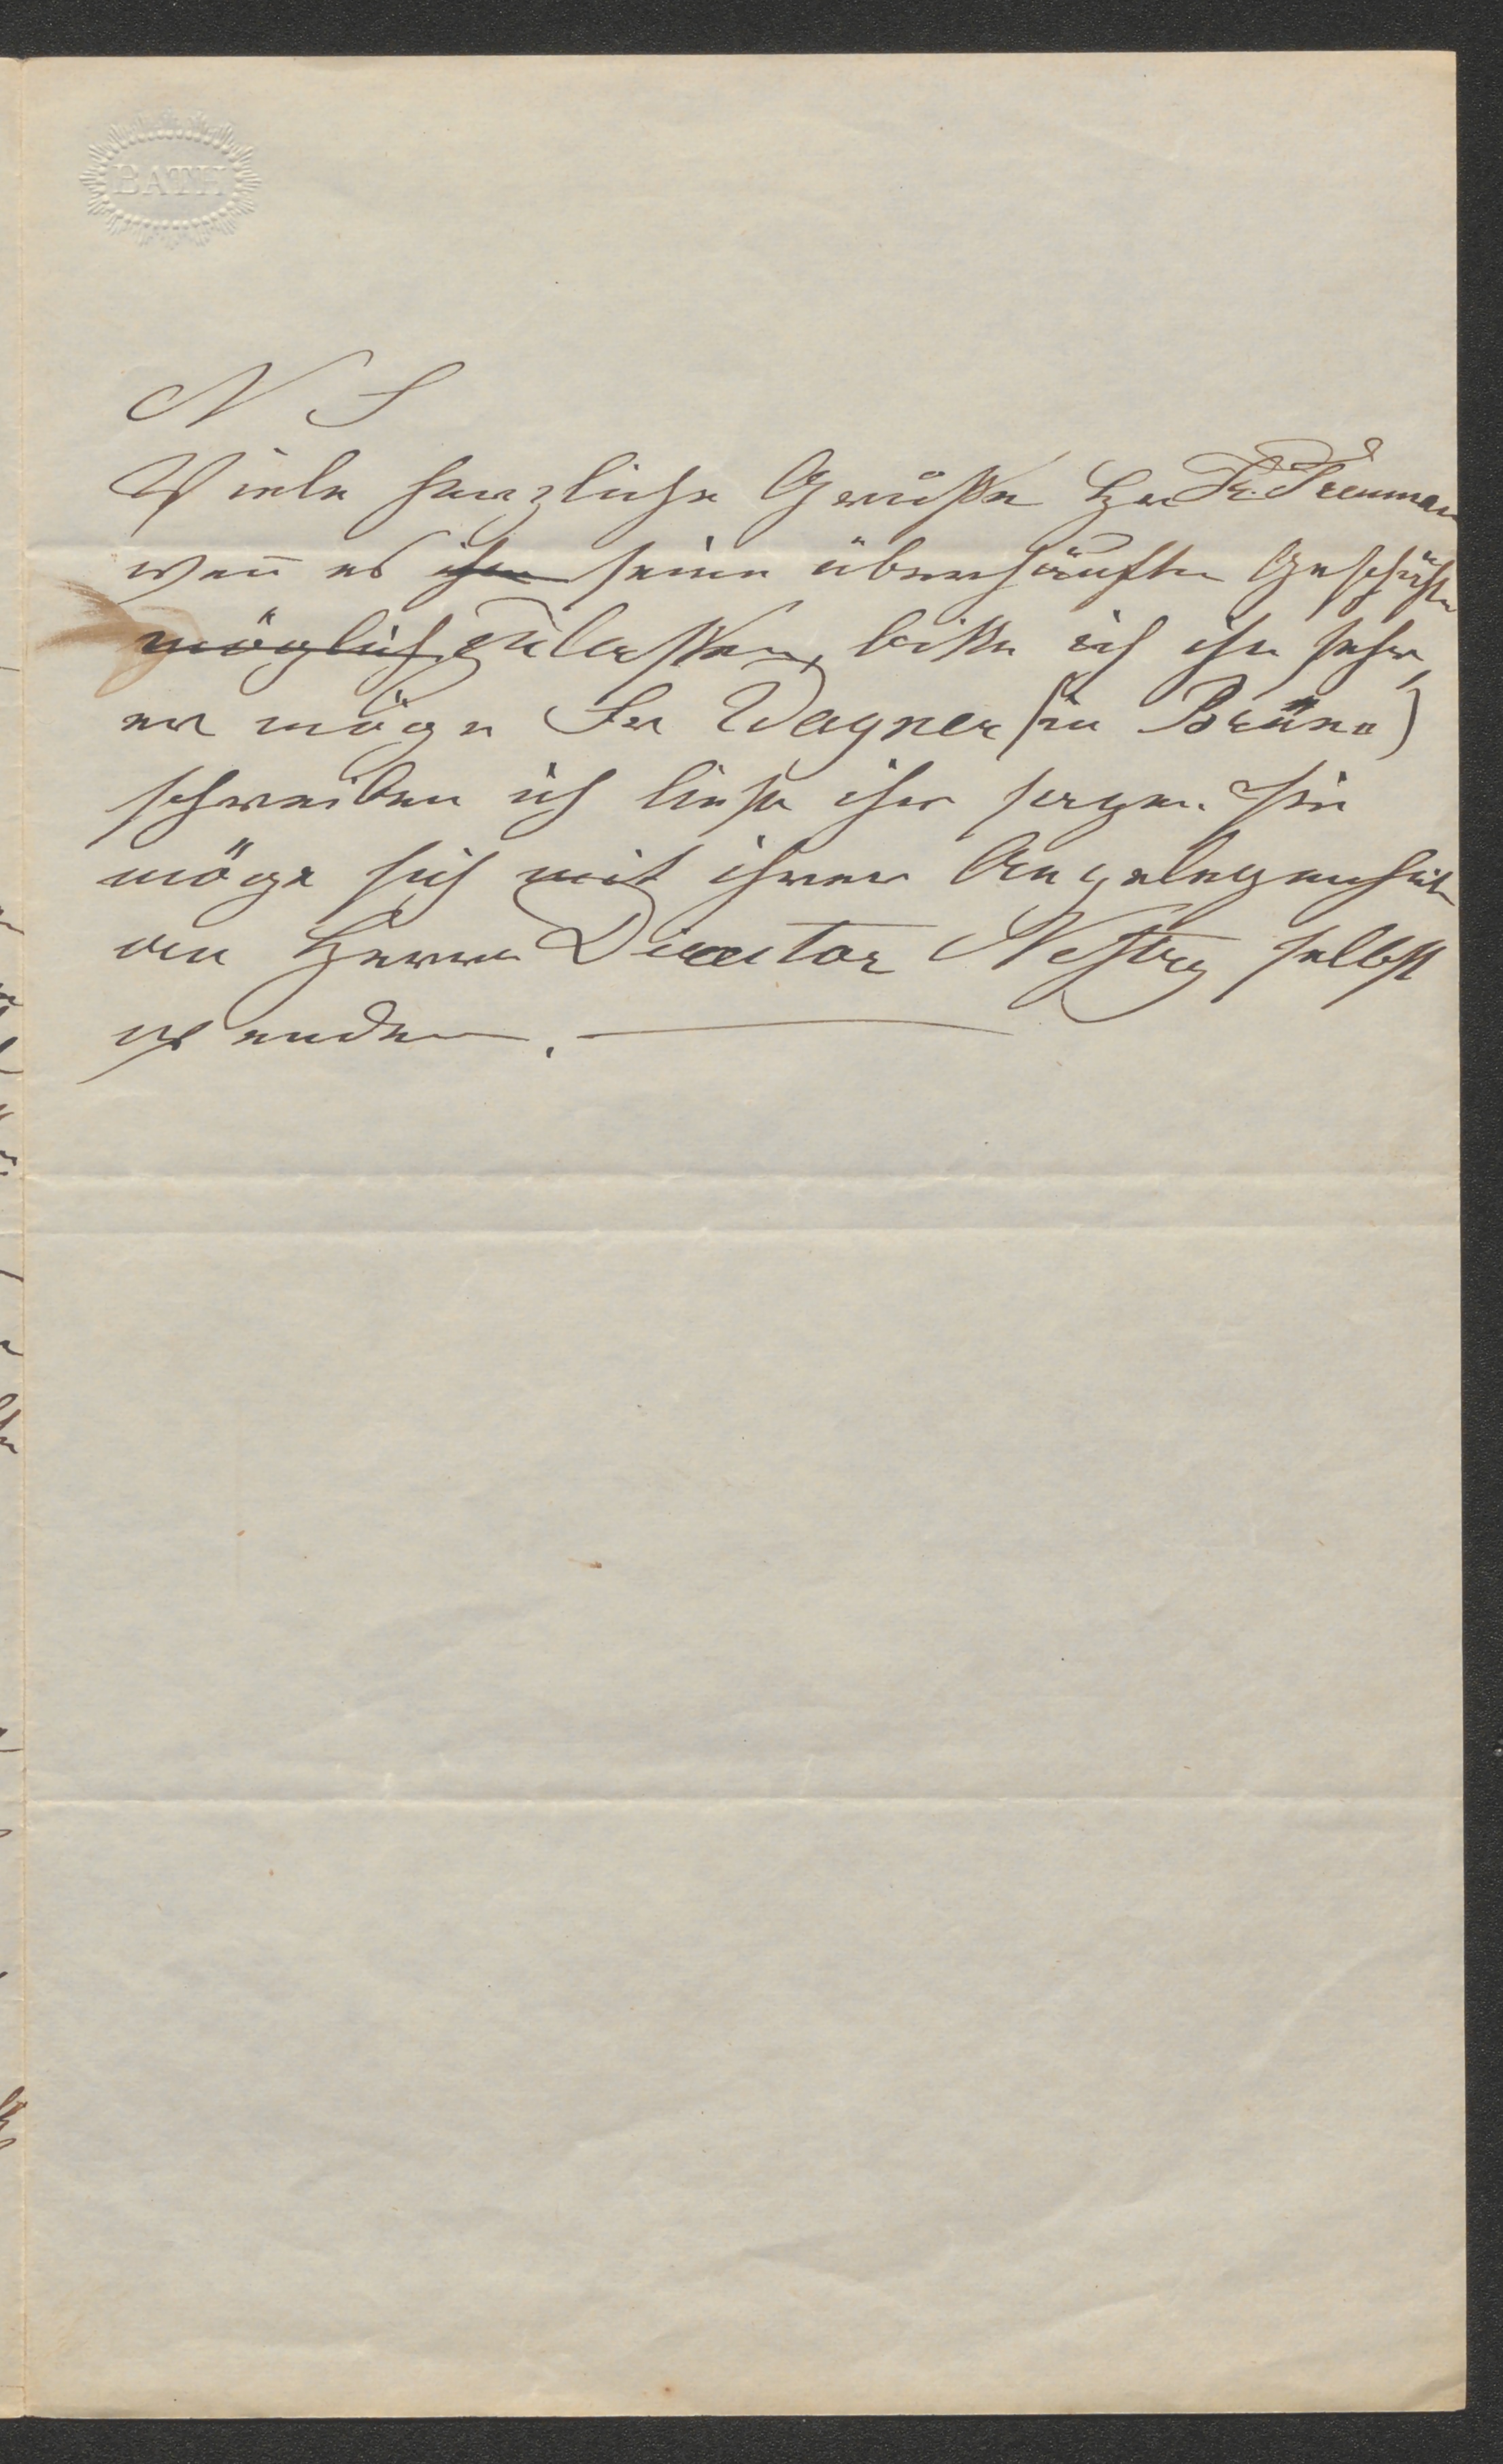 BATH
N S
Viele herzliche Grüße Hr Fr. Treuman
wen̄ es ihm seine überhäuften Geschäfte
möglich zulassen, bitte ich ihn sehr,
er möge Fr Wagner (in Brün̄)
schreiben ich ließe ihr sagen sie
möge sich mit ihrer Angelegenheit
an Herrn Director Nestroy selbst
wenden.